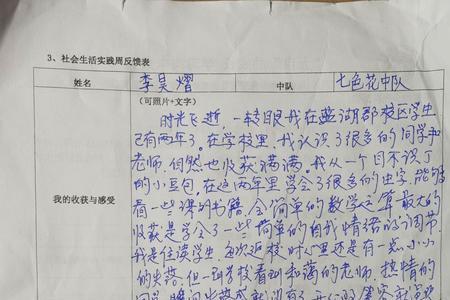 3、社会生活实践周反馈表
姓名 李昊熠 中队 七色花中队
(可照片+文字)
时光飞逝,一转眼我在 湖郡校区学生
已有两年了。在学校里,我认识了很多的同学和
老师,自然也收获满满。我从一个目不识丁
的小豆包,在这两年里学会了很多的生字,能够
看一些课外书籍,会简单的数学运算,最大的
我的收获与感受
收获是学会了一些简单的自我情绪的调节。
我是住读学生,每次返校时心里还是有一点小小
的失落,但一到学校看到和蔼的老师,热情的
同学,瞬间失落感就没有了